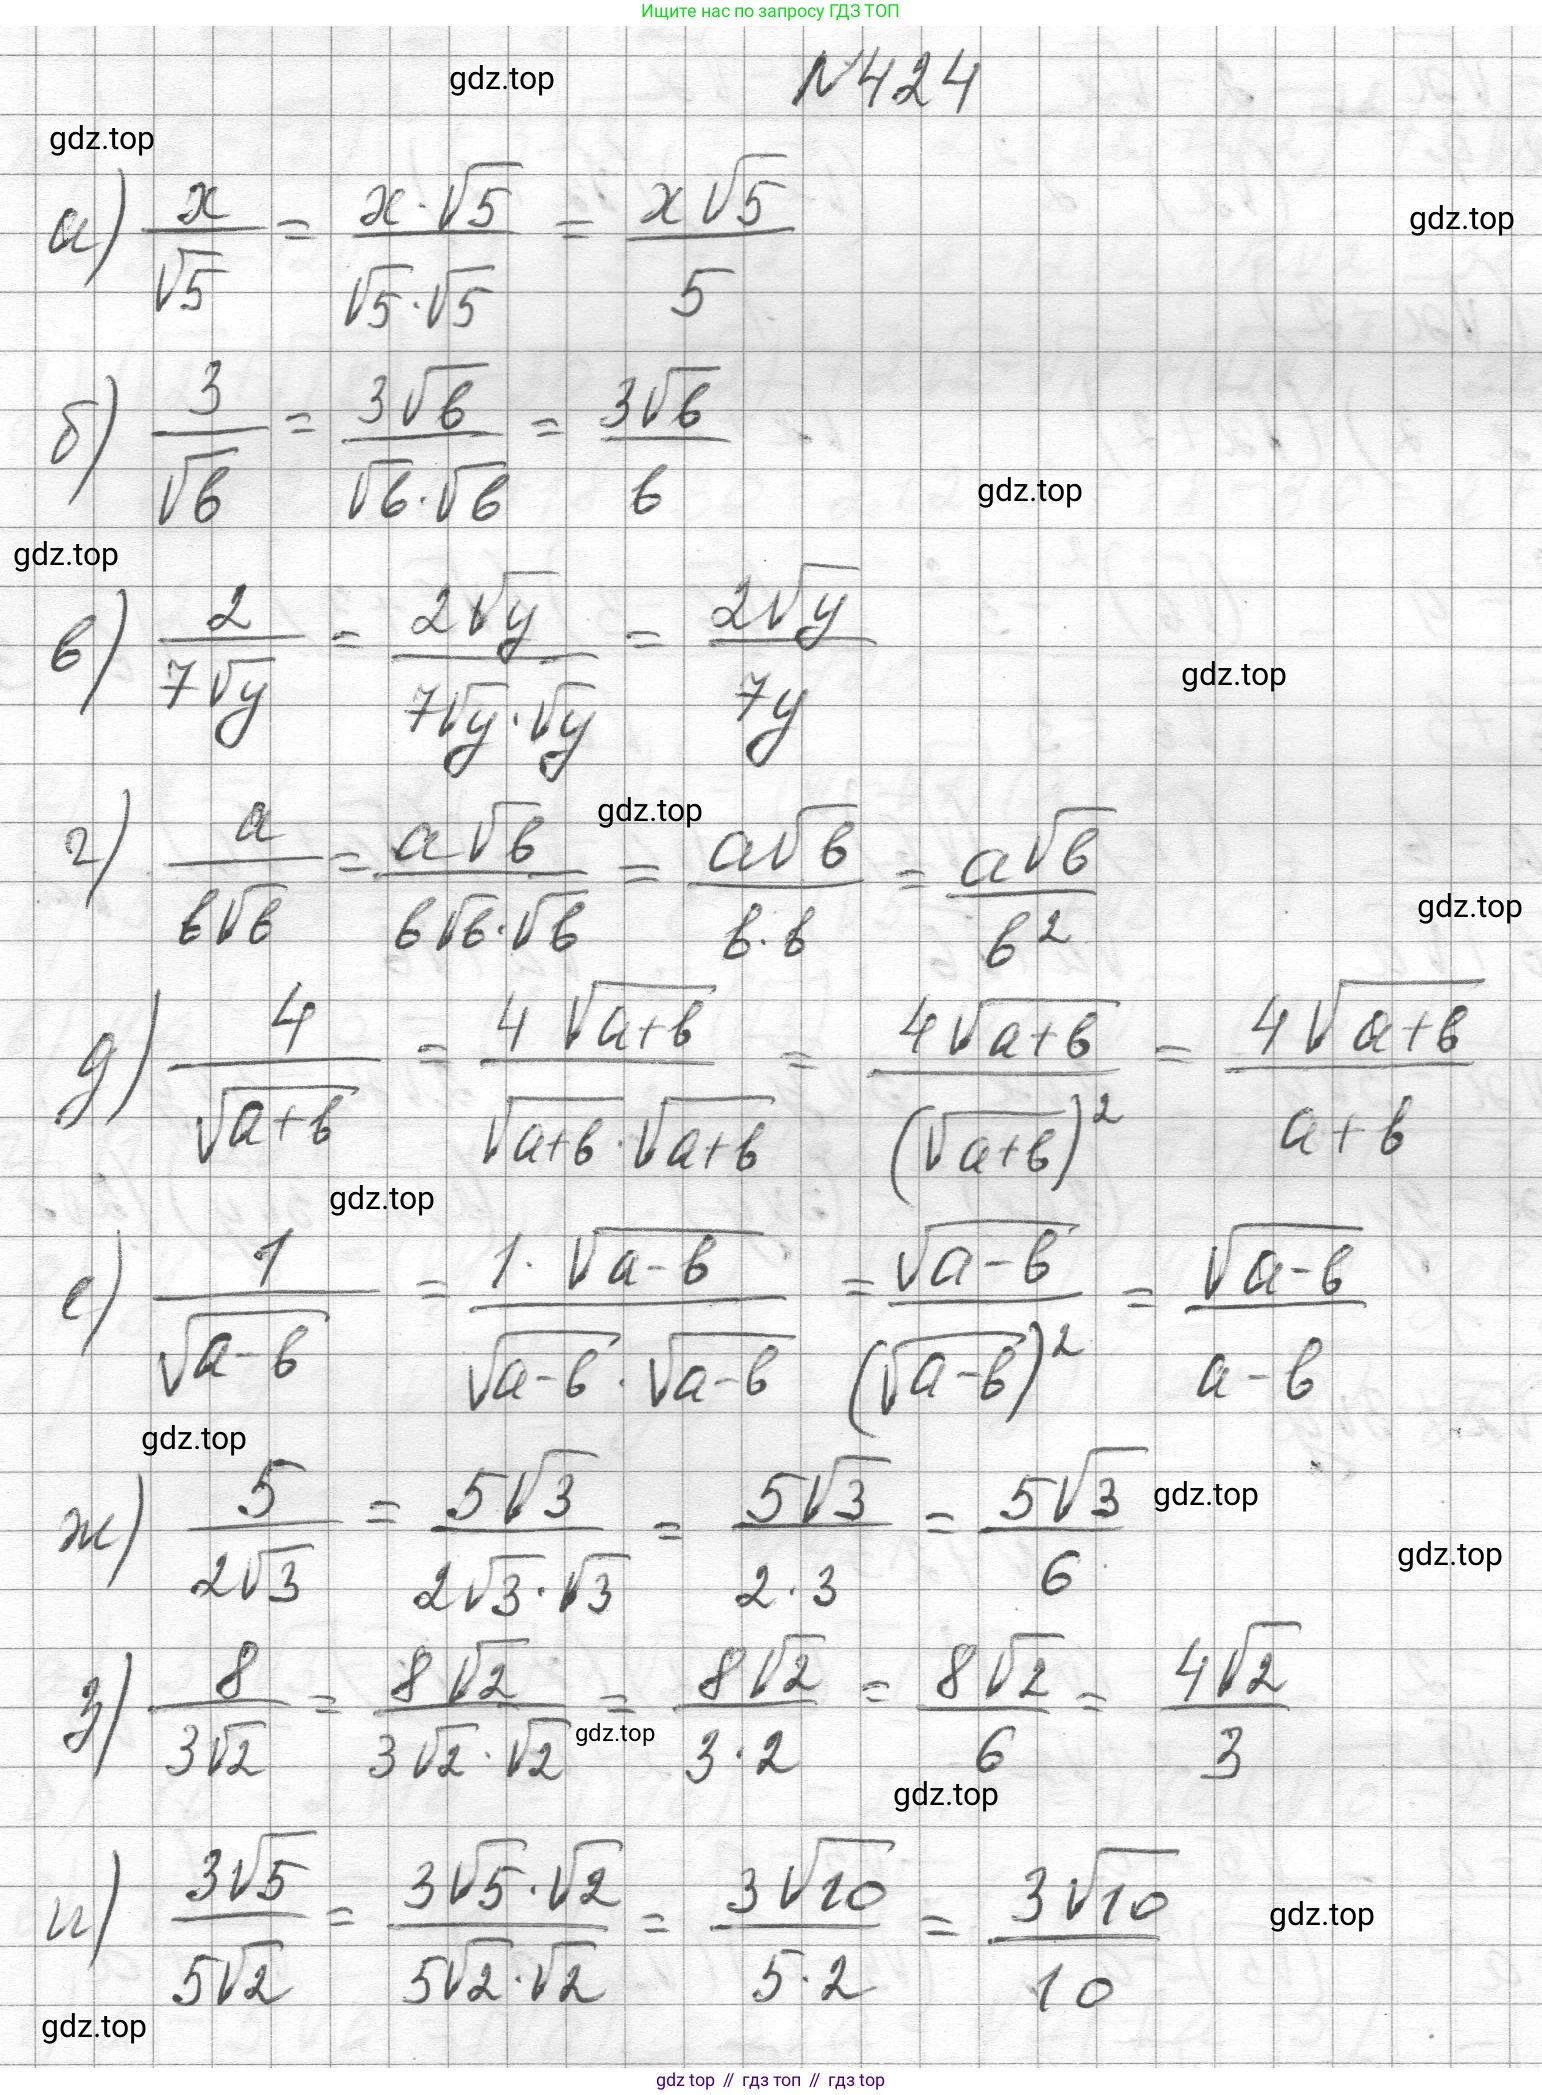 Ищите нас по запросу ГДЗ ТОП
gdz.top
№424
gdz.top
а) x/√5 = x·√5/√5·√5 = x√5/5
gdz.top
б) 3/√b = 3√b/√b·√b = 3√b/b
gdz.top
gdz.top
в) 2/7√y = 2√y/7√y·√y = 2√y/7y
gdz.top
gdz.top
г) a/b√b = a√b/b√b·√b = a√b/b·b = a√b/b²
gdz.top
д) 4/√(a+b) = 4√(a+b)/√(a+b)·√(a+b) = 4√(a+b)/(√(a+b))² = 4√(a+b)/a+b
gdz.top
е) 1/√(a-b) = 1·√(a-b)/√(a-b)·√(a-b) = √(a-b)/(√(a-b))² = √(a-b)/a-b
gdz.top
ж) 5/2√3 = 5√3/2√3·√3 = 5√3/2·3 = 5√3/6
gdz.top
gdz.top
з) 8/3√2 = 8√2/3√2·√2 = 8√2/3·2 = 8√2/6 = 4√2/3
gdz.top
gdz.top
и) 3√5/5√2 = 3√5·√2/5√2·√2 = 3√10/5·2 = 3√10/10
gdz.top
gdz.top
gdz top // гдз топ // гдз top